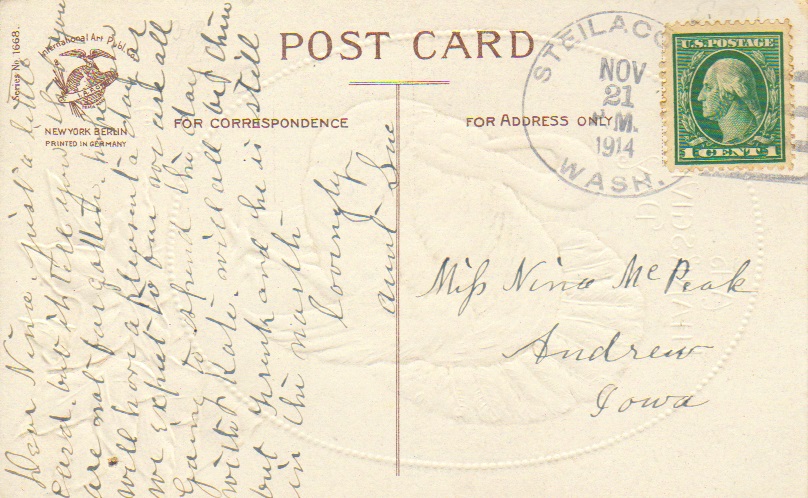 Series No 1668.
International Art Publ. Co.
NEW YORK BERLIN
PRINTED IN GERMANY
POST CARD
FOR CORRESPONDENCE
FOR ADDRESS ONLY
STEILACO
NOV
21
M.
1914
WASH.
U.S. POSTAGE
1 CENT 1
Dear Nina. Just a little
card. but it tell you that you
are not forgotten. hope
will have a plesent day
we expect to our we are all
Going to spend the day
with Kate. will all be thire
but Frank and he is still
in the north
Lovingly
Aunt Sue
Miss Nina McPeak
Andrew
Iowa